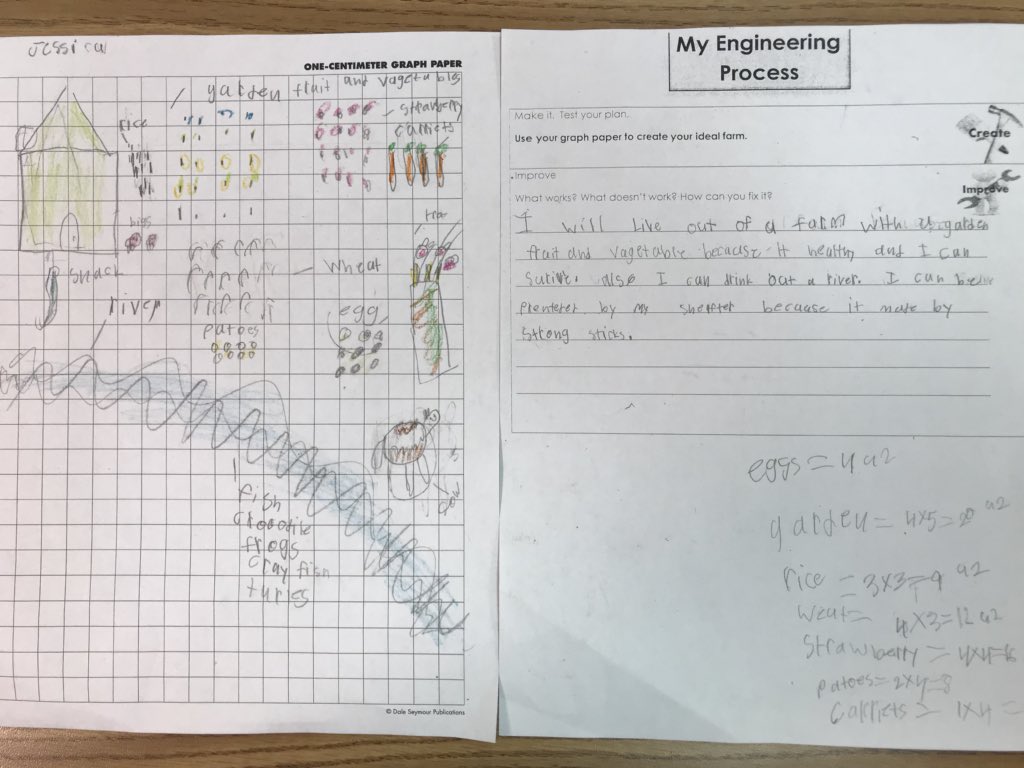 Jessica
ONE-CENTIMETER GRAPH PAPER
garden fruit and vagetables
rice
strawberry
carriets
bigs
snack
wheat
river
egg
patoes
cow
fish
frogs
cray fish
turles
© Dale Seymour Publications
My Engineering
Process
Make it. Test your plan.
Use your graph paper to create your ideal farm.
Create
Improve
What works? What doesn't work? How can you fix it?
Improve
I will live out of a farm with a garden
fruit and vagetable because it healthy and I can
surive. also I can drink out a river. I can be
by my because it made by
strong sticks.
eggs = 4 u2
garden = 4x5=20 u2
rice = 3x3=9 u2
weat= 4x3=12 u2
strawberry = 4x4=16
patoes=2x4=8
carriets = 1x4 =